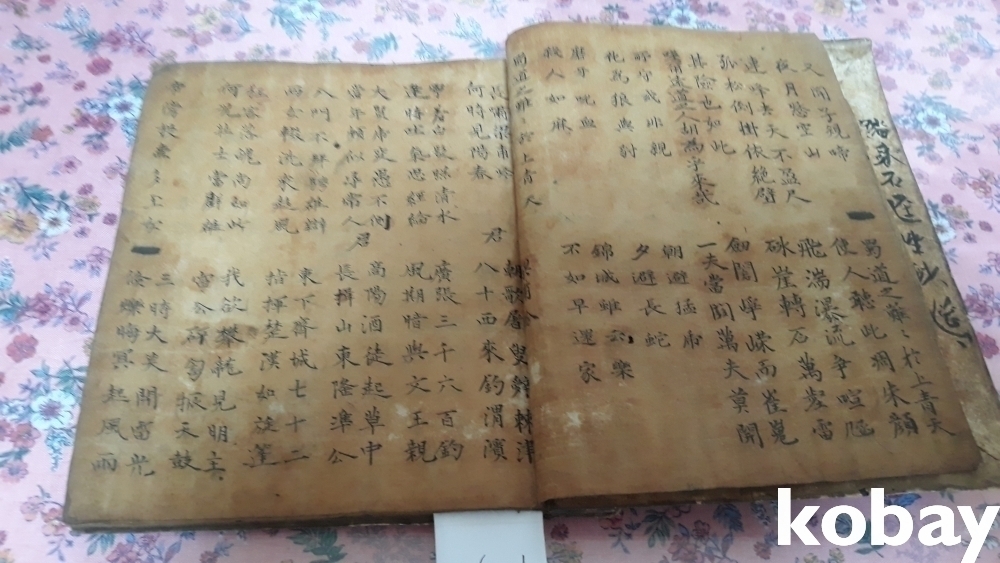 又聞子規啼
夜月愁空山
連峰去天不盈尺
孤松倒掛依絶壁
其險也如此
嗟爾遠道人胡爲乎來哉
所守或非親
化爲狼與豺
磨牙吮血
殺人如麻
蜀道之難〻於上青天
蜀道之難〻於上青天
使人聽此凋朱顔
飛湍瀑流爭喧豗
砯崖轉石萬壑雷
劍閣崢嶸而崔嵬
一夫當關萬夫莫開
朝避猛虎
夕避長蛇
錦城雖云樂
不如早還家
長嘯梁甫吟
何時見陽春
寧羞白髮照清水
逢時吐氣思經綸
大賢虎變愚不測
當年頗似尋常人
不拜騁雄辯
兩女輟洗來趨風
狂客落魄尚如此
何況壯士當群雄
帝旁投壺多玉女
君
朝歌屠叟辭棘津
八十西來釣渭濱
廣張三千六百釣
風期暗與文王親
君
高陽酒徒起草中
長揖山東隆準公
東下齊城七十二
指揮楚漢如旋蓬
我欲攀龍見明主
雷公砰訇振天鼓
三時大笑開電光
倏爍晦冥起風雨
kobay